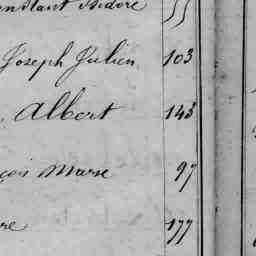 Isidore
Joseph Julien 103
Albert 143
Marie 97
re 177